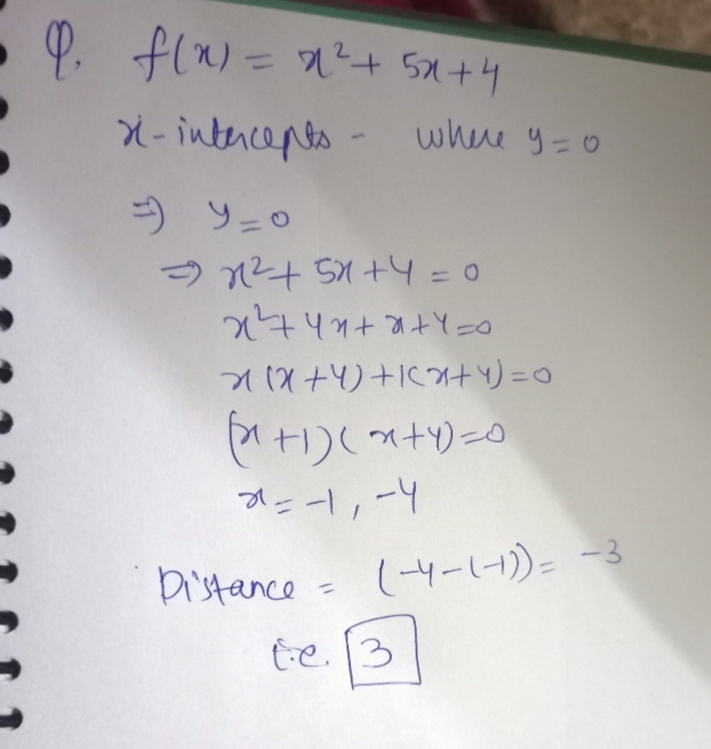 Q. f(x) = x² + 5x + 4
x-intercepts - where y = 0
⇒ y = 0
⇒ x² + 5x + 4 = 0
x² + 4x + x + 4 = 0
x(x + 4) + 1(x + 4) = 0
(x + 1)(x + 4) = 0
x = -1, -4
Distance = (-4 - (-1)) = -3
i.e. 3